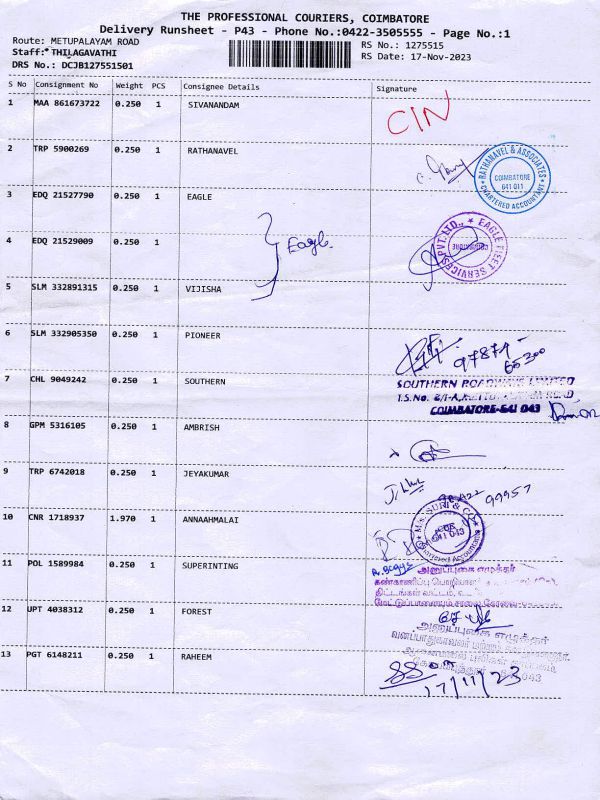 THE PROFESSIONAL COURIERS, COIMBATORE
Delivery Runsheet - P43 - Phone No.:0422-3505555 - Page No.:1
Route: METUPALAYAM ROAD RS No.: 1275515
Staff: THILAGAVATHI RS Date: 17-Nov-2023
DRS No.: DCJB127551501
S No Consignment No Weight PCS Consignee Details Signature
1 MAA 861673722 0.250 1 SIVANANDAM
CIN
2 TRP 5900269 0.250 1 RATHANAVEL
RATHANAVEL & ASSOCIATES
COIMBATORE
641 011
CHARTERED ACCOUNTANT
3 EDQ 21527790 0.250 1 EAGLE
EAGLE FLEET SERVICES PVT. LTD.,
COIMBATORE
4 EDQ 21529009 0.250 1
Eagle
5 SLM 332891315 0.250 1 VIJISHA
6 SLM 332905350 0.250 1 PIONEER
97874-
65300
7 CHL 9049242 0.250 1 SOUTHERN
SOUTHERN ROADWAYS LIMITED
COIMBATORE-641 043
8 GPM 5316105 0.250 1 AMBRISH
9 TRP 6742018 0.250 1 JEYAKUMAR
99957
10 CNR 1718937 1.970 1 ANNAAHMALAI
M.S. SURI & CO
641 043
Chartered Accountants
11 POL 1589984 0.250 1 SUPERINTING
அனுப்புகை எழுத்தர்
12 UPT 4038312 0.250 1 FOREST
அனுப்புகை எழுத்தர்
13 PGT 6148211 0.250 1 RAHEEM
17/11/23